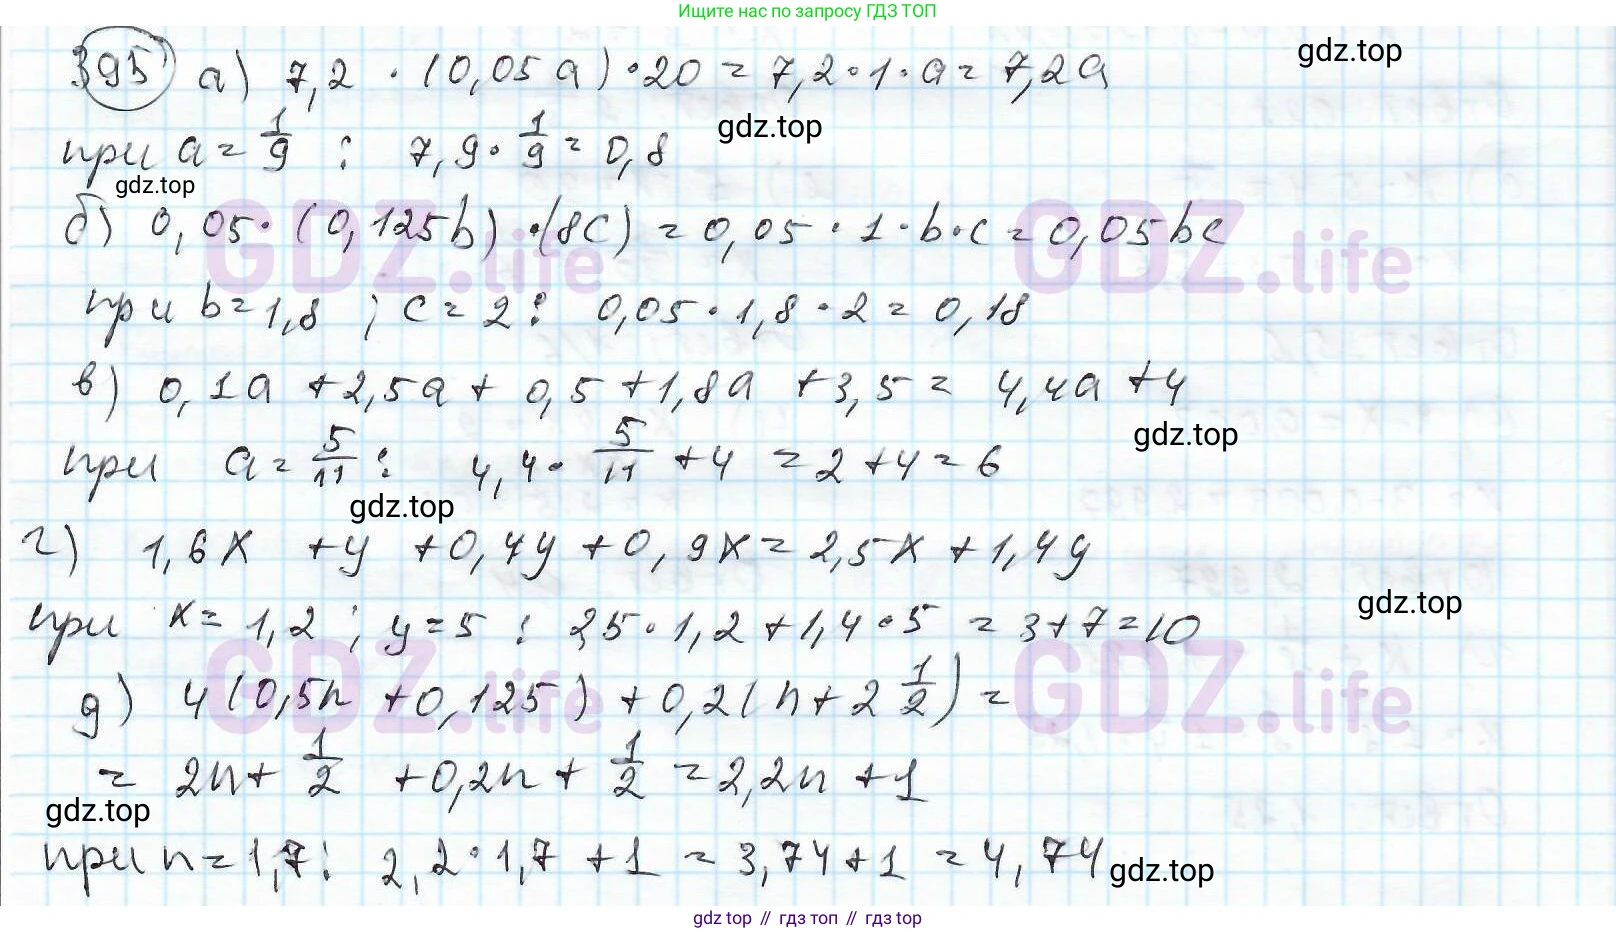 Ищите нас по запросу ГДЗ ТОП
395 а) 7,2 · (0,05 a) · 20 = 7,2 · 1 · a = 7,2a
gdz.top
при a = 1/9 : 7,9 · 1/9 = 0,8
gdz.top
gdz.top
б) 0,05 · (0,125b) · (8c) = 0,05 · 1 · b · c = 0,05bc
GDZ.life GDZ.life
при b = 1,8 ; c = 2 : 0,05 · 1,8 · 2 = 0,18
в) 0,1a + 2,5a + 0,5 + 1,8a + 3,5 = 4,4a + 4
gdz.top
при a = 5/11 : 4,4 · 5/11 + 4 = 2 + 4 = 6
gdz.top
г) 1,6x + y + 0,4y + 0,9x = 2,5x + 1,4y
gdz.top
при x = 1,2 ; y = 5 : 2,5 · 1,2 + 1,4 · 5 = 3 + 7 = 10
GDZ.life GDZ.life
д) 4(0,5n + 0,125) + 0,2(n + 2 1/2) =
= 2n + 1/2 + 0,2n + 1/2 = 2,2n + 1
gdz.top
при n = 1,7 : 2,2 · 1,7 + 1 = 3,74 + 1 = 4,74
gdz.top
gdz top // гдз топ // гдз top